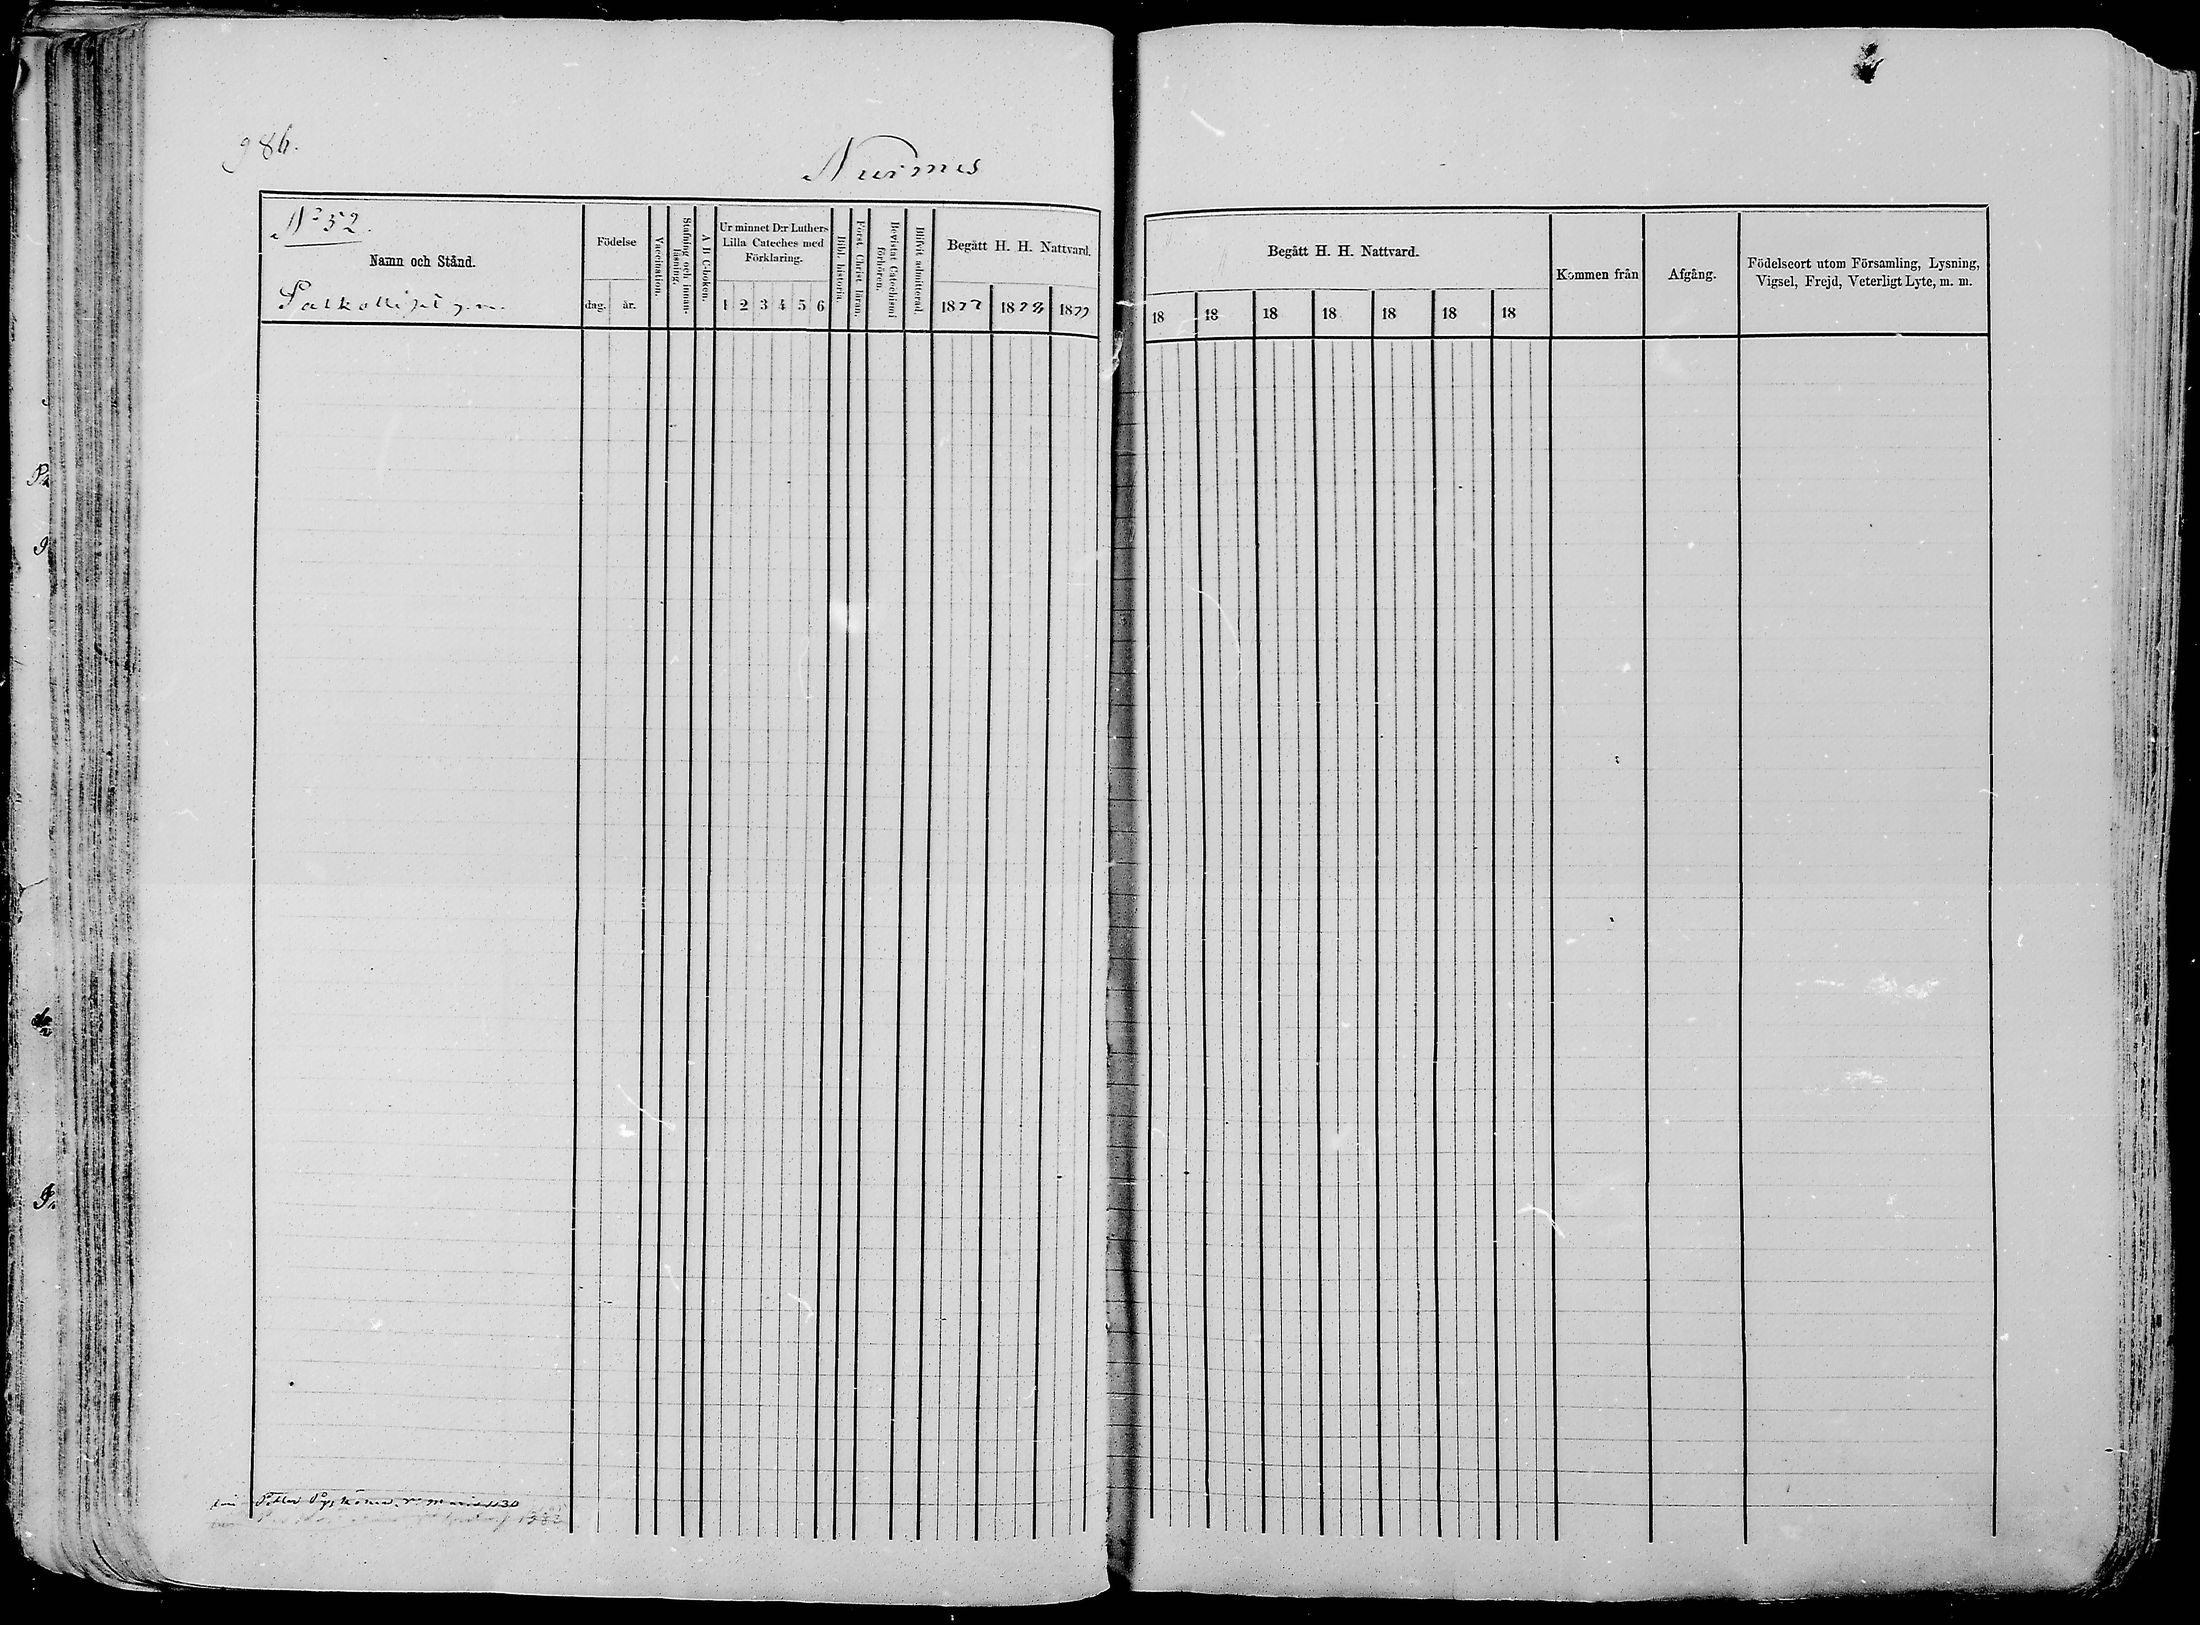 986.
Nurmes
No 52.
Namn och Stånd.
Födelse
dag. år.
Vaccination.
Stafning och innan-
läsning.
A B C-boken.
Ur minnet D:r Luthers
Lilla Cateches med
Förklaring.
1 2 3 4 5 6
Bibl. historia.
Först. Christ. läran.
Bevistat Catechismi
förhören.
Blifvit admitterad.
Begått H. H. Nattvard.
1877 1878 1879
Begått H. H. Nattvard.
18 18 18 18 18 18 18
Kommen från
Afgång.
Födelseort utom Församling, Lysning,
Vigsel, Frejd, Veterligt Lyte, m. m.